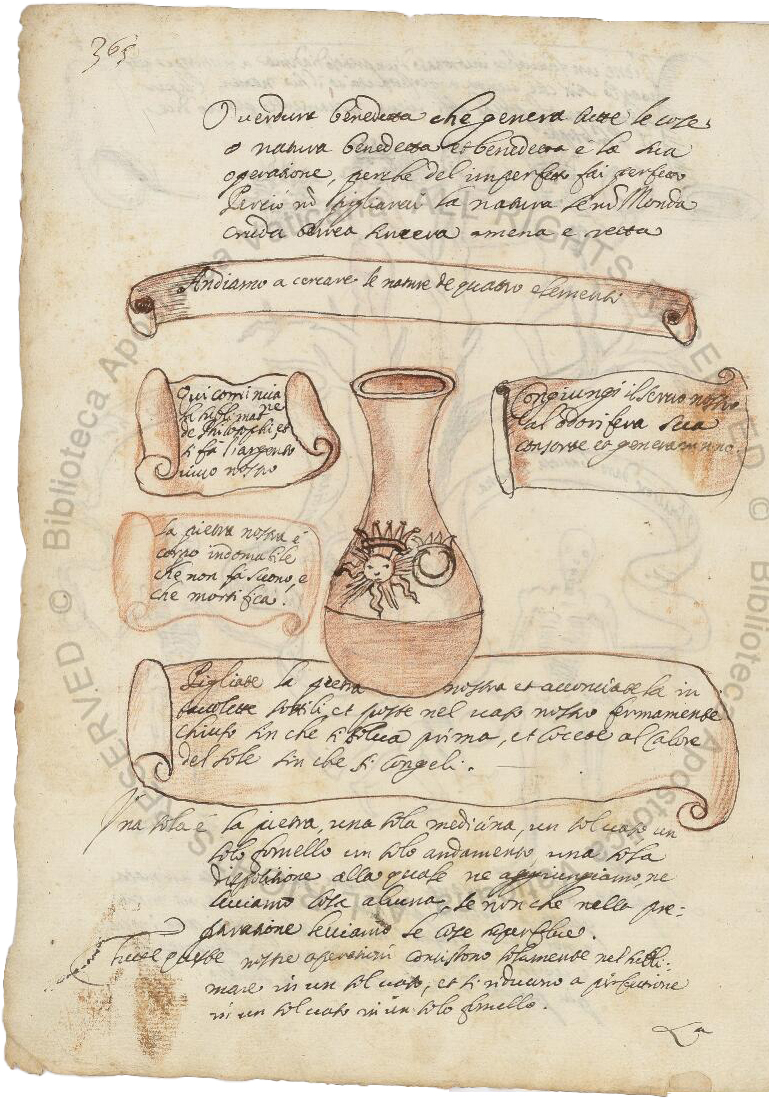 365
O verdura benedetta che genera tutte le cose,
o natura benedetta et benedetta è la sua
operatione, perche del imperfetto fai perfetto
Perciò nō pigliarai la natura se nō Monda
cruda terrea sincera amena e retta
Andiamo a cercare le nature de quatro elementi
Qui comincia
la sublimatione
de Philosophi, et
si fà l'argento
vivo nostro
Congiungi il servo nostro
alla odorifera sua
consorte et generaranno.
la pietra nostra è
corpo indomabile
che non fà suono, e
che mortifica.
Pigliate la pietra nostra et acconciatela in
tavolette sottili et poste nel vaso nostro fermamente
chiuso sin che si solva prima, et cocete al Calore
del sole sin che si congeli.
Una sola è la pietra, una sola medicina, un sol vaso un
solo fornello un solo andamento, una sola
dispositione alla quale ne aggiungiamo, ne
leviamo cosa alcuna, se non che nella pre-
paratione leviamo le cose superflue.
Tutte nostre operationi consistono solamente nel subli-
mare in un sol vaso, et si riducano a perfettione
in un sol vaso in un solo fornello.
La
Biblioteca Apostolica Vaticana
ALL RIGHTS RESERVED ©